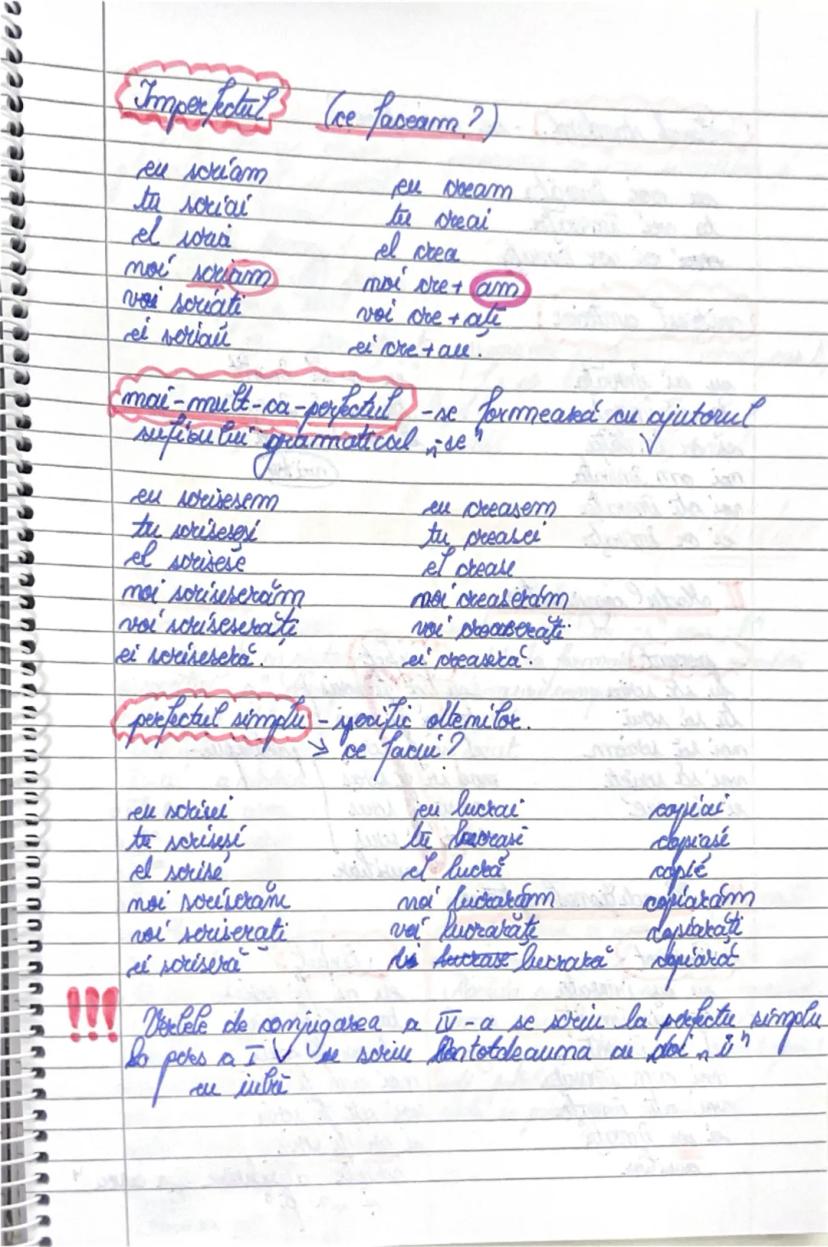 Imperfectul (ce faceam?)
eu scriam eu cream
tu scriai tu creai
el scria el crea
noi scriam noi cre + am
voi scriați voi cre + ați
ei scriau ei cre + au.
mai-mult-ca-perfectul - se formează cu ajutorul
sufixului gramatical „-se"
eu scrisesem eu creasem
tu scriseseși tu creasei
el scrisese el crease
noi scriseserăm noi creaserăm
voi scriseserăți voi creaserăți
ei scriseseră. ei creaseră.
perfectul simplu - specific oltenilor.
→ ce făcui?
eu scrisei eu lucrai copiai
tu scriseși tu lucrași copiași
el scrise el lucră copie
noi scriserăm noi lucrarăm copiarăm
voi scriserăți voi lucrarăți copiarăți
ei scriseră ei lucrară copiară
!!! Verbele de conjugarea a IV-a se scriu la perfectu simplu
la pers a I se scriu întotdeauna cu doi „ii"
eu iubii